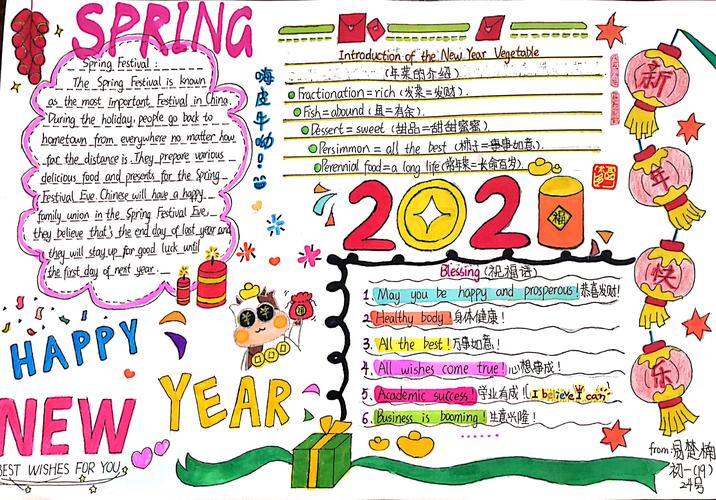 SPRING
Spring Festival :
The Spring Festival is known
as the most important Festival in China.
During the holiday, people go back to
hometown from everywhere no matter how
far the distance is. They prepare various
delicious food and presents for the Spring
Festival Eve. Chinese will have a happy
family union in the Spring Festival Eve,
they believe that's the end of last year and
they will stay up for good luck until
the first day of next year.
嗨皮牛呦!
Introduction of the New Year Vegetable
(年菜的介绍)
Fractionation=rich (发菜=发财).
Fish=abound (鱼=有余).
Dessert=sweet (甜品=甜甜蜜蜜)
Persimmon = all the best (柿汁=事事如意).
Perennial food=a long life(常年菜=长命百岁).
202
福
新
年
快
乐
Blessing (祝福语)
1. May you be happy and prosperous! 恭喜发财!
2. Healthy body! 身体健康!
3. All the best! 万事如意!
4. All wishes come true! 心想事成!
5. Academic success! 学业有成! I believe I can
6. Business is booming! 生意兴隆!
HAPPY
NEW
YEAR
BEST WISHES FOR YOU
from: 易楚楠
初一(19)
24号